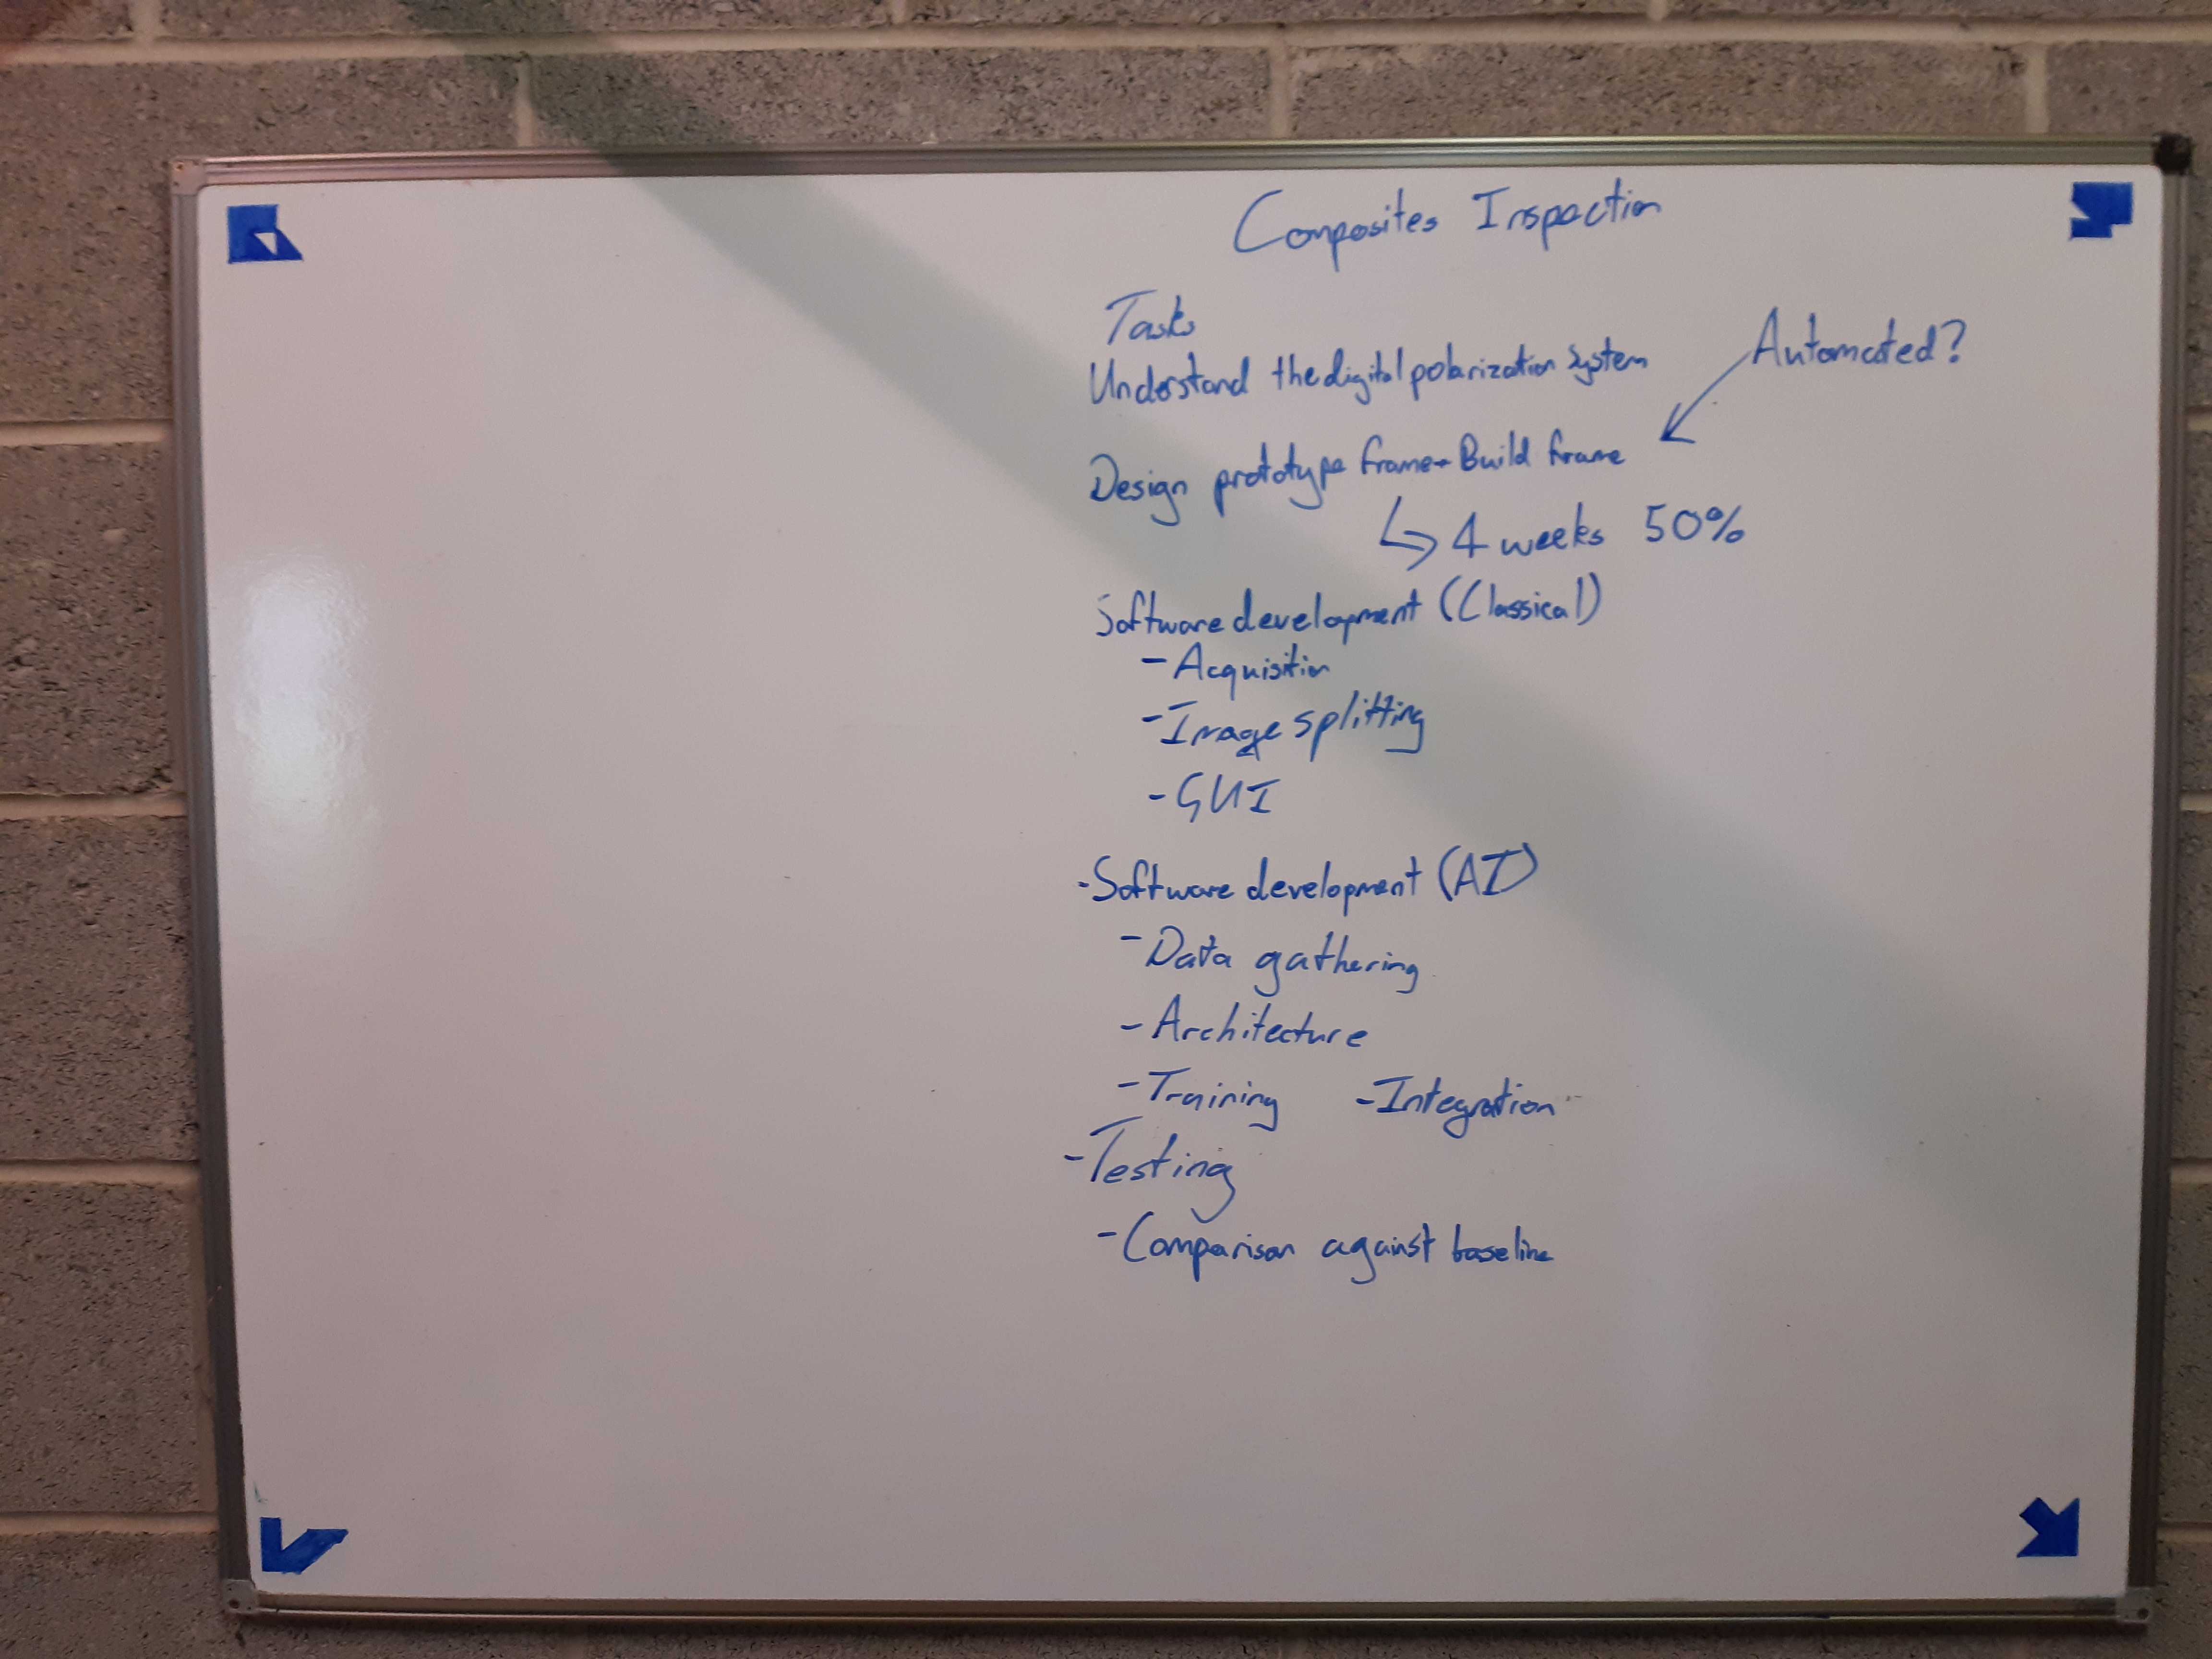 Composites Inspection
Tasks
Understand the digital polarization system
Automated?
Design prototype frame → Build frame
↳ 4 weeks 50%
Software development (Classical)
- Acquisition
- Image splitting
- GUI
- Software development (AI)
- Data gathering
- Architecture
- Training - Integration
- Testing
- Comparison against baseline